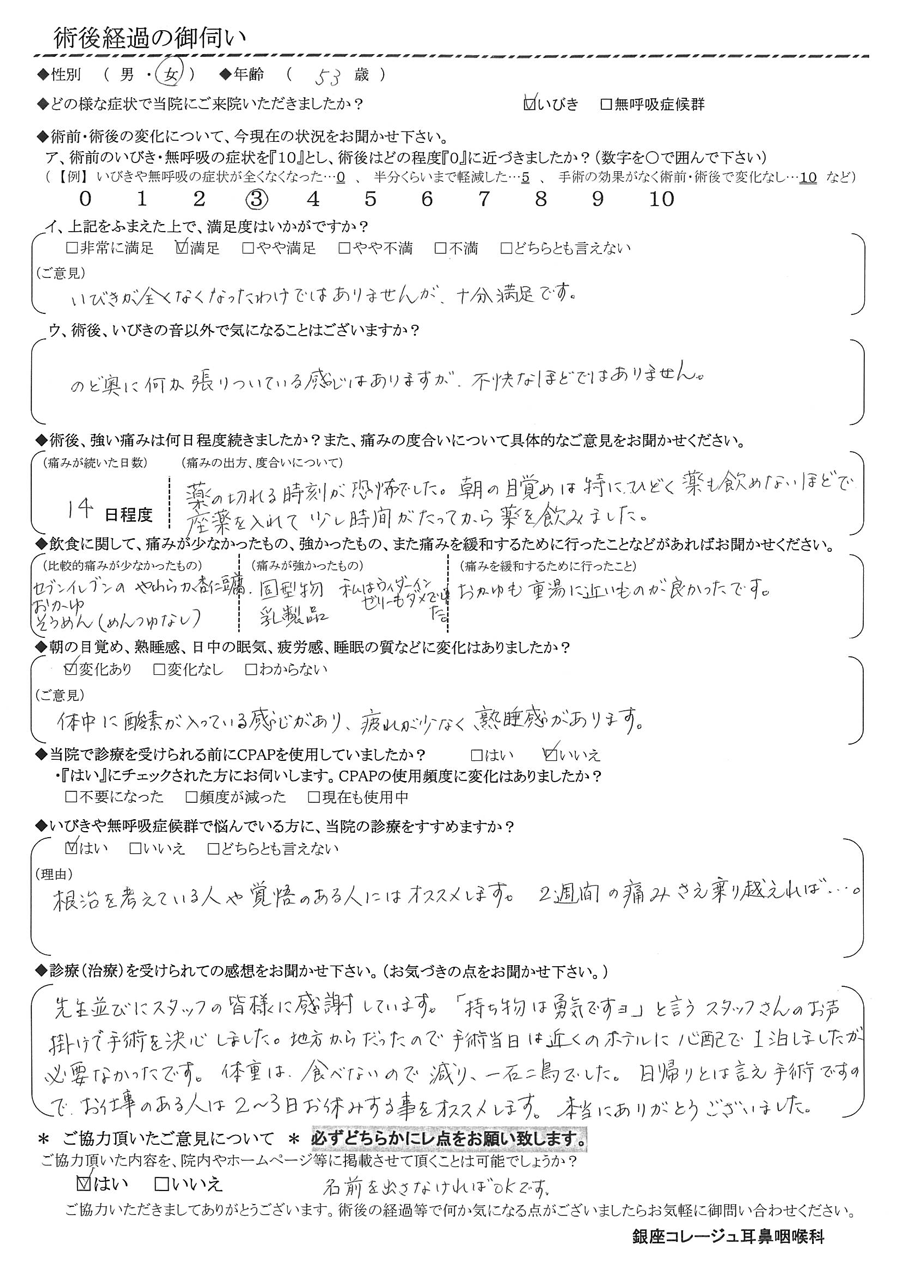 術後経過の御伺い
◆性別 （ 男 ・ 女 ） ◆年齢 （ 53 歳 ）
◆どの様な症状で当院にご来院いただきましたか？ ☑いびき □無呼吸症候群
◆術前・術後の変化について、今現在の状況をお聞かせ下さい。
ア、術前のいびき・無呼吸の症状を『10』とし、術後はどの程度『0』に近づきましたか？（数字を〇で囲んで下さい）
（【例】 いびきや無呼吸の症状が全くなくなった…0 、 半分くらいまで軽減した…5 、 手術の効果がなく術前・術後で変化なし…10 など）
0 1 2 ③ 4 5 6 7 8 9 10
イ、上記をふまえた上で、満足度はいかがですか？
□非常に満足 ☑満足 □やや満足 □やや不満 □不満 □どちらとも言えない
（ご意見）
いびきが全くなくなったわけではありませんが、十分満足です。
ウ、術後、いびきの音以外で気になることはございますか？
のど奥に何か張りついている感じはありますが、不快なほどではありません。
◆術後、強い痛みは何日程度続きましたか？また、痛みの度合いについて具体的なご意見をお聞かせください。
（痛みが続いた日数） （痛みの出方、度合いについて）
14 日程度
薬の切れる時刻が恐怖でした。朝の目覚めは特にひどく薬も飲めないほどで
座薬を入れて少し時間がたってから薬を飲みました。
◆飲食に関して、痛みが少なかったもの、強かったもの、また痛みを緩和するために行ったことなどがあればお聞かせください。
（比較的痛みが少なかったもの） （痛みが強かったもの） （痛みを緩和するために行ったこと）
セブンイレブンの やわらか杏仁豆腐．
おかゆ
そうめん（めんつゆなし）
固型物 私はウィダーイン
ゼリーもダメでし
乳製品 た。
おかゆも重湯に近いものが良かったです。
◆朝の目覚め、熟睡感、日中の眠気、疲労感、睡眠の質などに変化はありましたか？
☑変化あり □変化なし □わからない
（ご意見）
体中に酸素が入っている感じがあり、疲れが少なく熟睡感があります。
◆当院で診療を受けられる前にCPAPを使用していましたか？ □はい ☑いいえ
・『はい』にチェックされた方にお伺いします。CPAPの使用頻度に変化はありましたか？
□不要になった □頻度が減った □現在も使用中
◆いびきや無呼吸症候群で悩んでいる方に、当院の診療をすすめますか？
☑はい □いいえ □どちらとも言えない
（理由）
根治を考えている人や覚悟のある人にはオススメします。 2週間の痛みさえ乗り越えれば…。
◆診療（治療）を受けられての感想をお聞かせ下さい。（お気づきの点をお聞かせ下さい。）
先生並びにスタッフの皆様に感謝しています。「持ち物は勇気ですョ」と言うスタッフさんのお声
掛けで手術を決心しました。地方からだったので手術当日は近くのホテルに心配で1泊しましたが
必要なかったです。 体重は、食べないので減り、一石二鳥でした。 日帰りとは言え手術ですの
で、お仕事のある人は2～3日お休みする事をオススメします。 本当にありがとうございました。
＊ ご協力頂いたご意見について ＊ 必ずどちらかにレ点をお願い致します。
ご協力頂いた内容を、院内やホームページ等に掲載させて頂くことは可能でしょうか？
☑はい □いいえ 名前を出さなければOKです。
ご協力いただきましてありがとうございます。術後の経過等で何か気になる点がございましたらお気軽に御問い合わせください。
銀座コレージュ耳鼻咽喉科